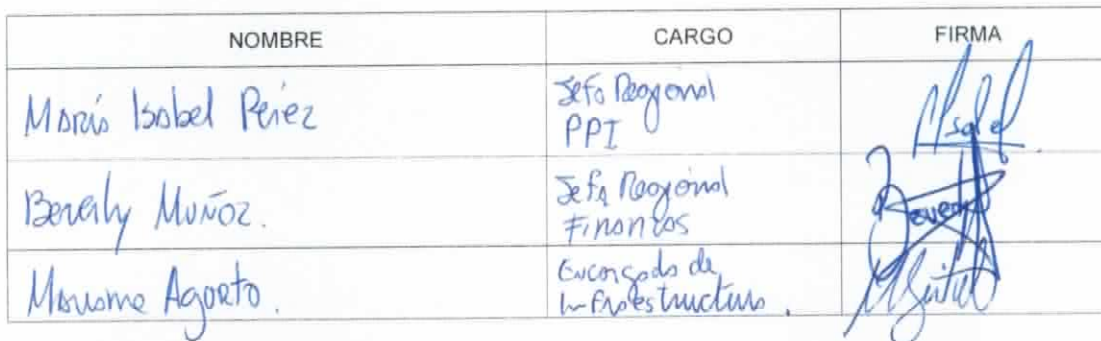 NOMBRE CARGO FIRMA
María Isabel Pérez
Jefa Regional
PPI
Beverly Muñoz.
Jefa Regional
Finanzas
Agurto.
Encargada de
Infraestructura.